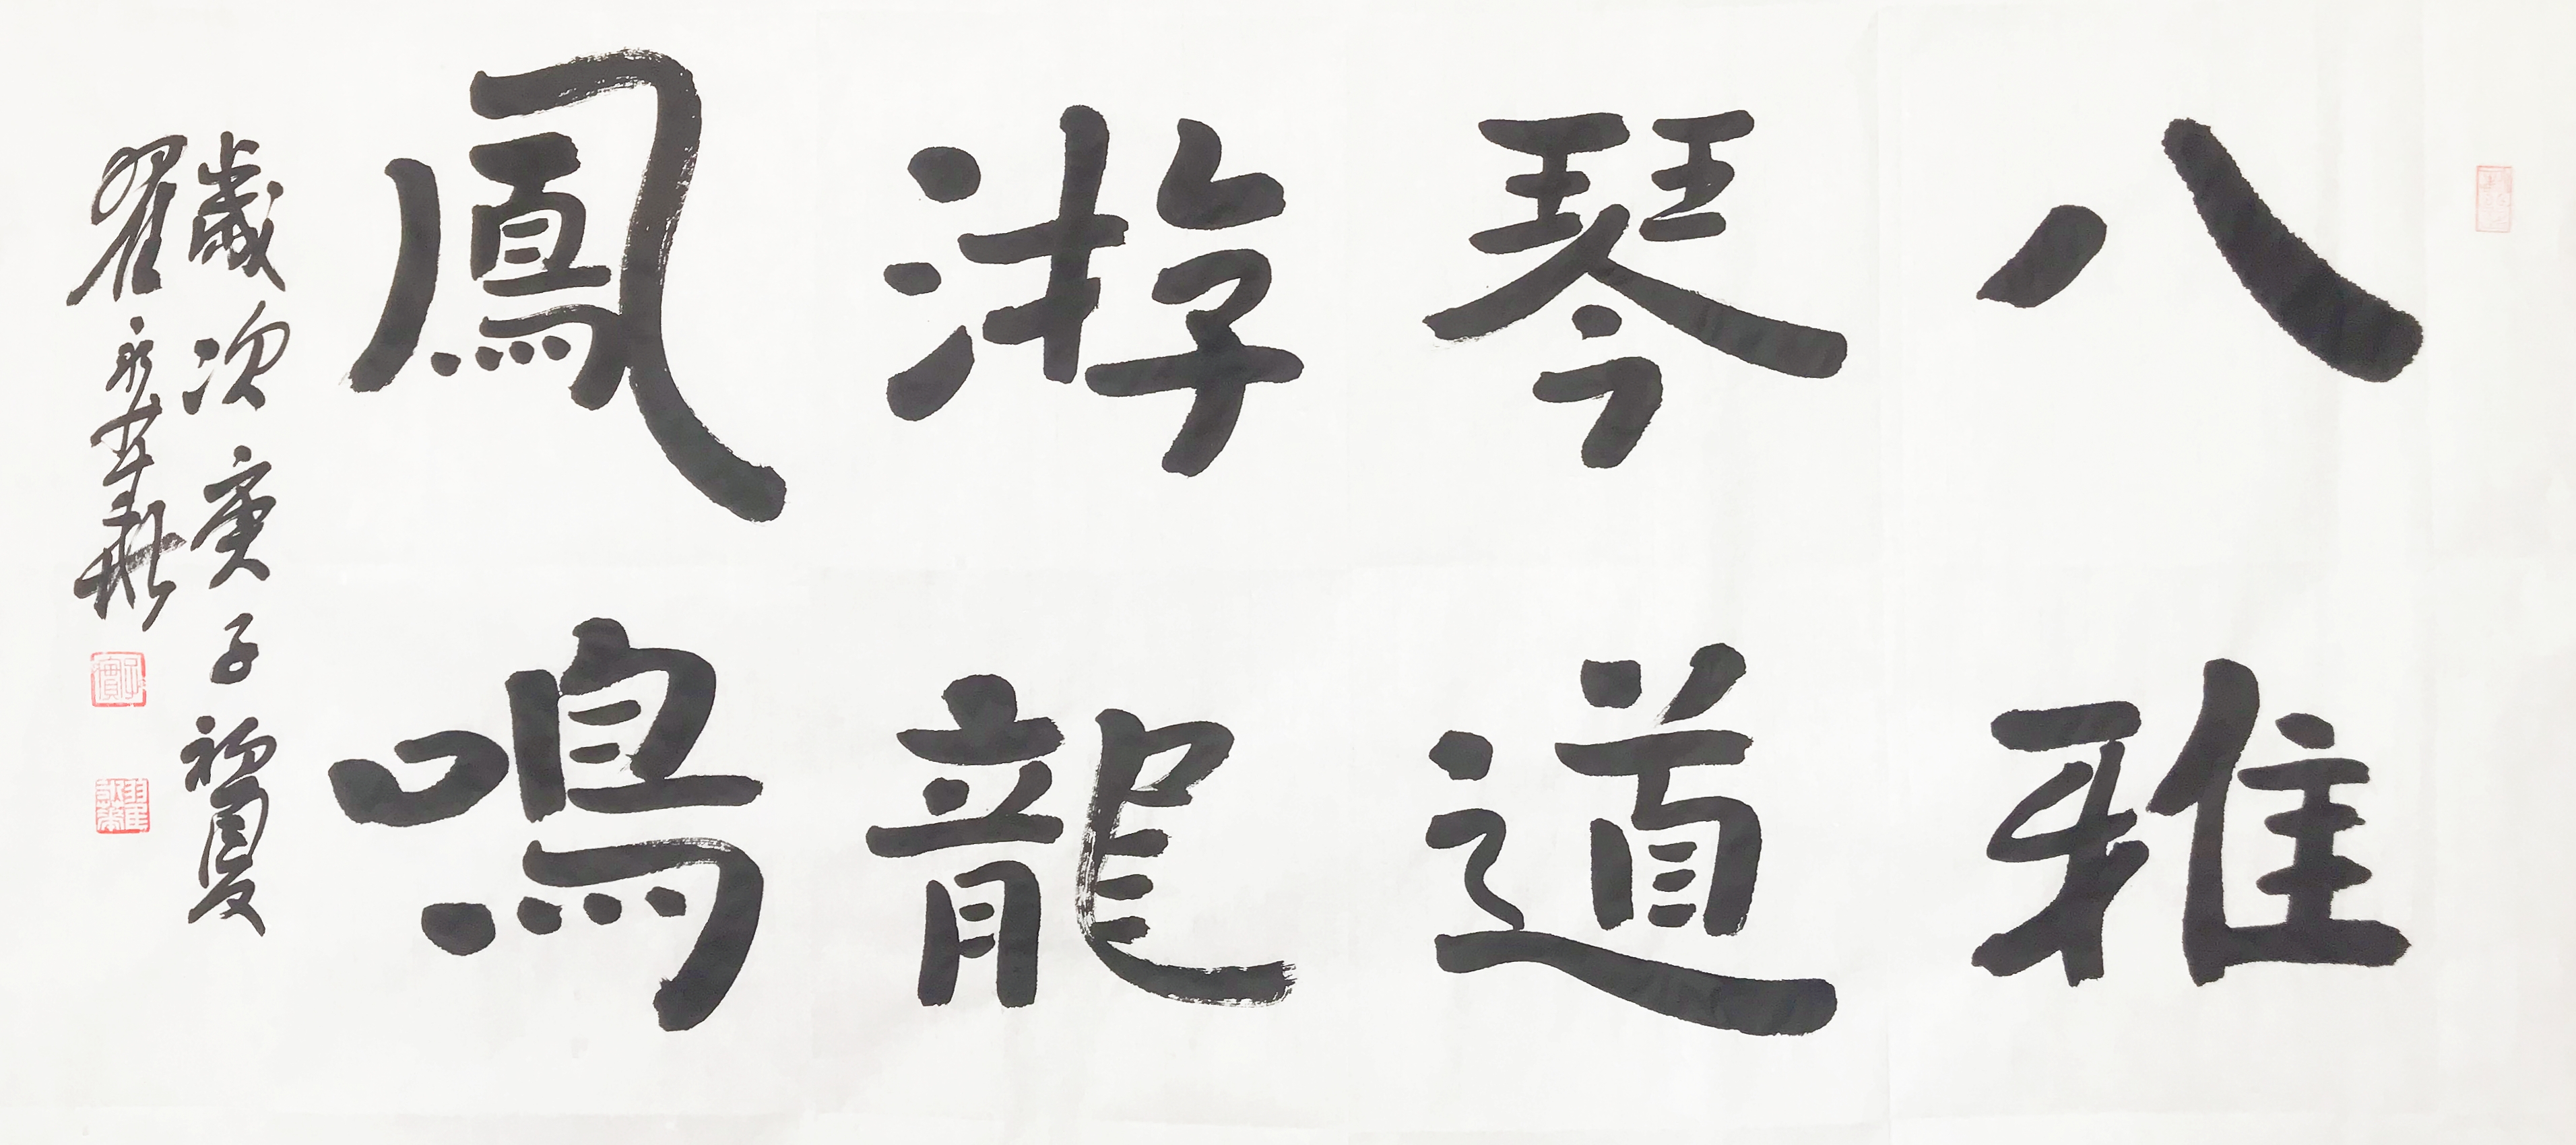 八雅
琴道
游龍
鳳鳴
歲次庚子初夏
翟永華書